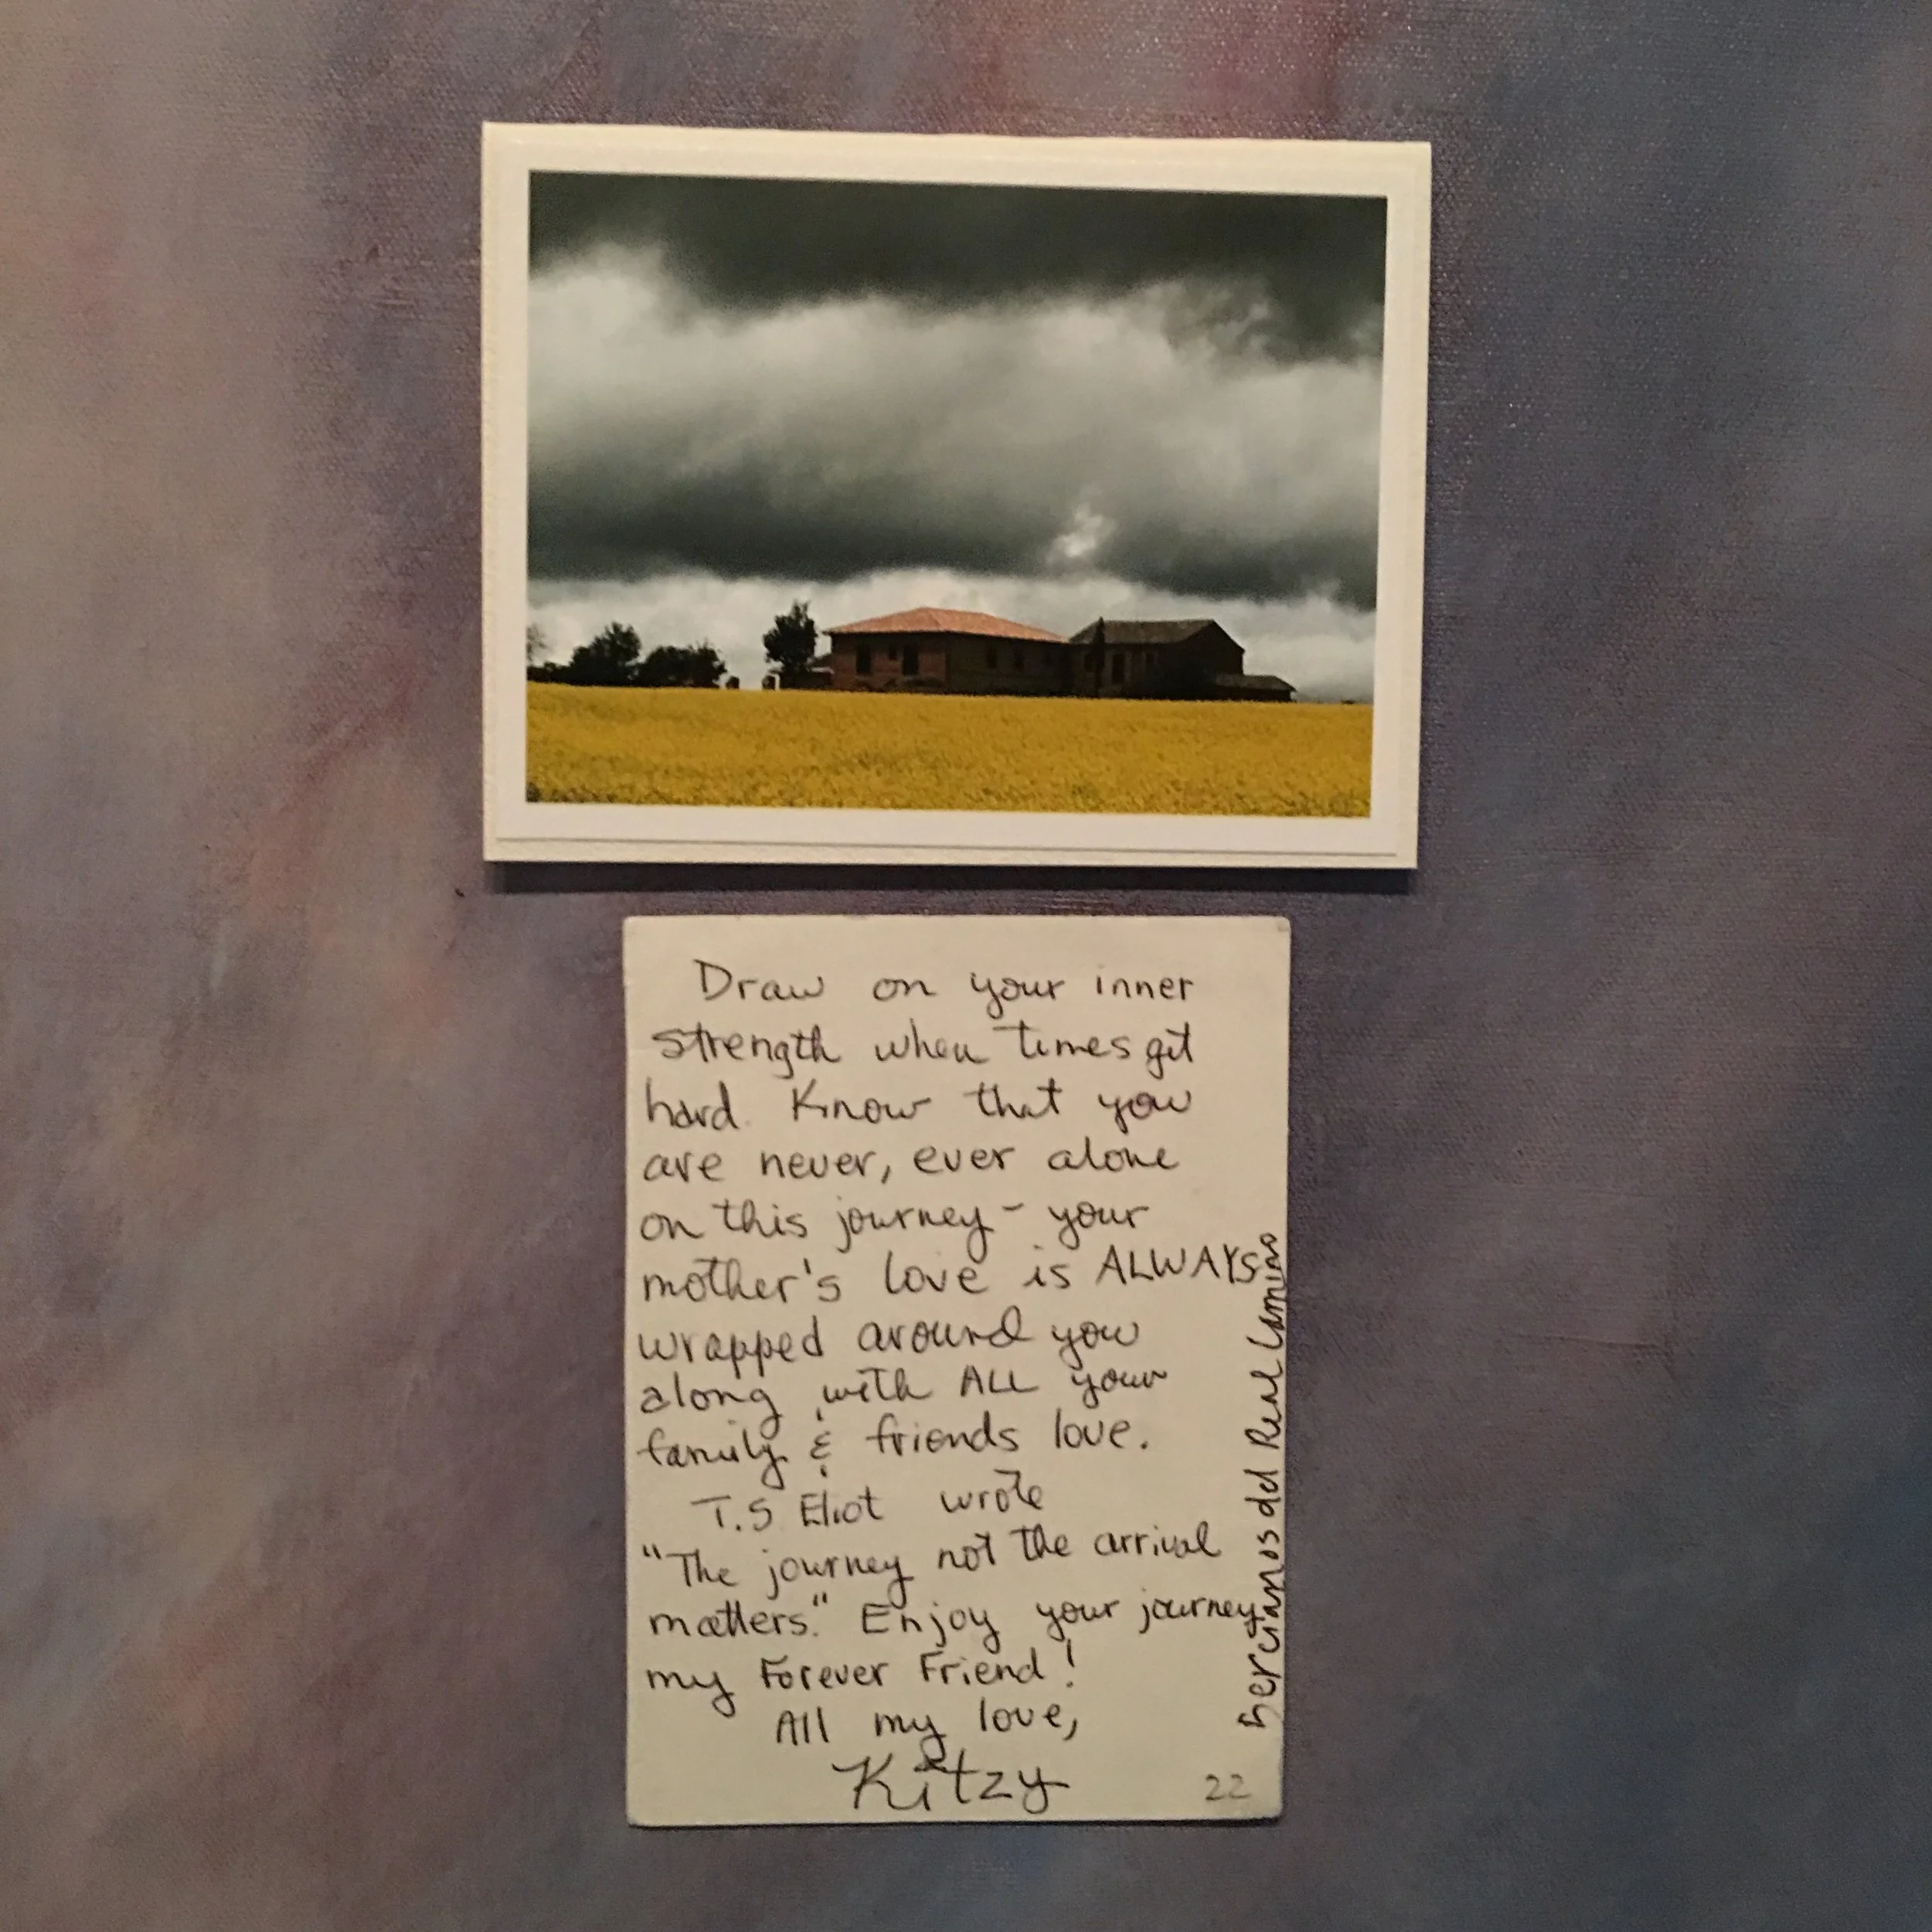 Draw on your inner
strength when times get
hard. Know that you
are never, ever alone
on this journey - your
mother's love is ALWAYS
wrapped around you
along with ALL your
family & friends love.
T.S Eliot wrote
"The journey not the arrival
matters." Enjoy your journey
my Forever Friend!
All my love,
Kitzy
22
Bercianos del Real Camino